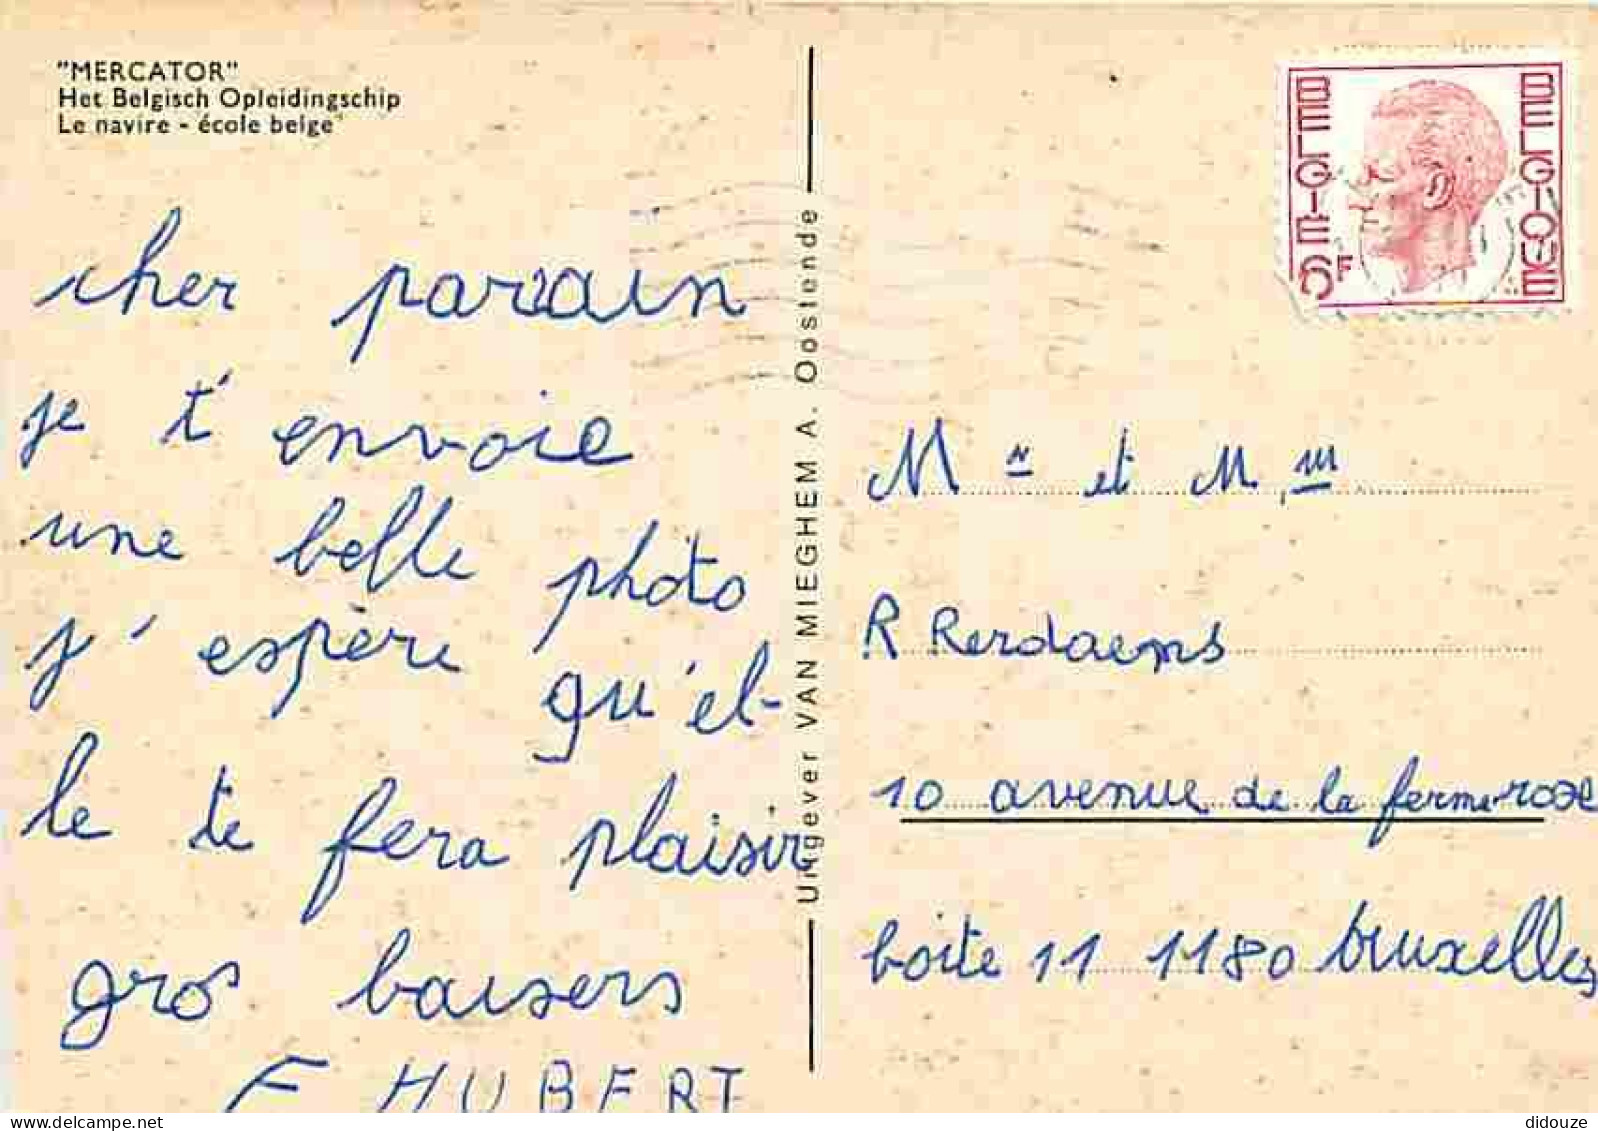 "MERCATOR"
Het Belgisch Opleidingschip
Le navire - école belge
cher parrain
je t'envoie
une belle photo
j'espère qu'el-
le te fera plaisir
gros baisers
F HUBERT
Uitgever VAN MIEGHEM A. Oostende
BELGIE 5F BELGIQUE
Mr et Mm
R Rerdaems
10 avenue de la ferme rose
boite 11 1180 bruxelles
didouze